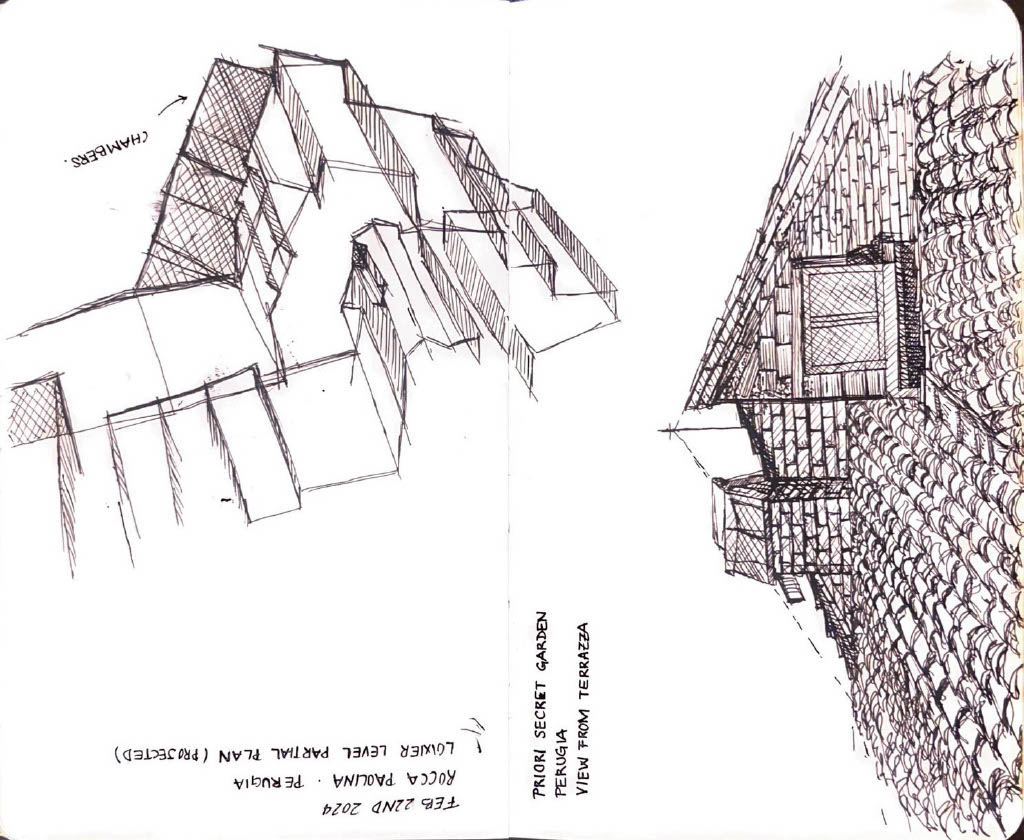 CHAMBERS.
FEB 22ND 2024
ROCCA PAOLINA · PERUGIA
LOWER LEVEL PARTIAL PLAN (PROJECTED)
PRIORI SECRET GARDEN
PERUGIA
VIEW FROM TERRAZZA